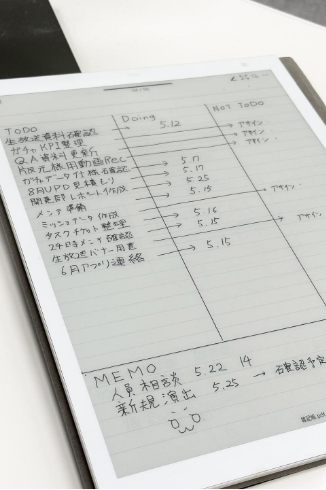 TODO
Doing
NOT TODO
生放送資料確認 → 5.12 → アサイン
ガチャKPI整理 → アサイン
QA資料更新 → アサイン
版元様用動画Rec → 5.17
ガチャデータ仕様確認 → 5.17
8月UPD見積もり → 5.25
開発部レポート作成 → 5.15
メンテ準備 → アサイン
ミッションデータ作成 → 5.16
タスクチケット整理 → 5.15 → アサイン
24日時メンテ確認
生放送バナー用意 → 5.15
6月アプリ連絡
MEMO
人員相談 5.22 14
新規演出 5.25 → 確認予定